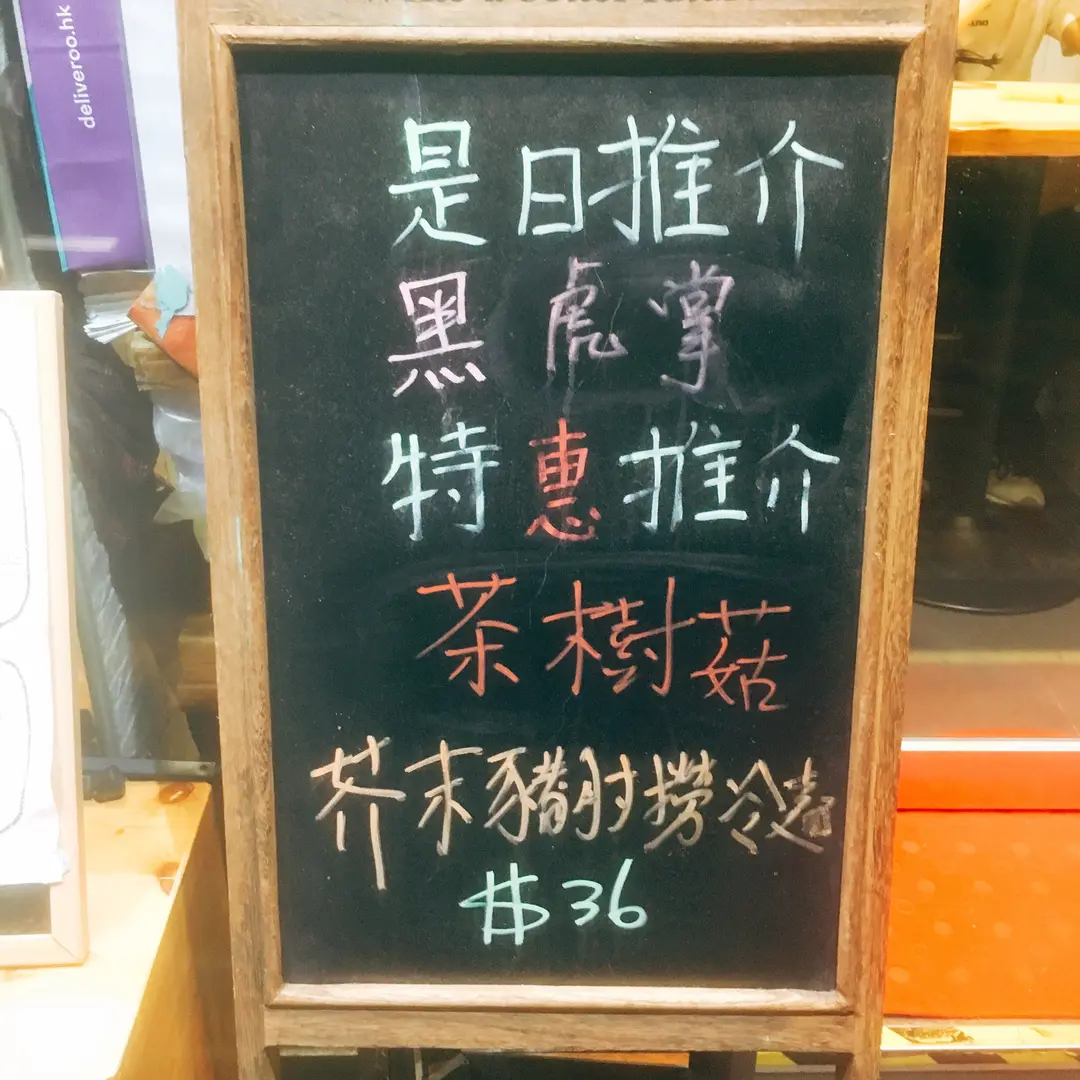 deliveroo.hk
是日推介
黑虎掌
特惠推介
茶樹菇
芥末豬肘撈冷麵
$36